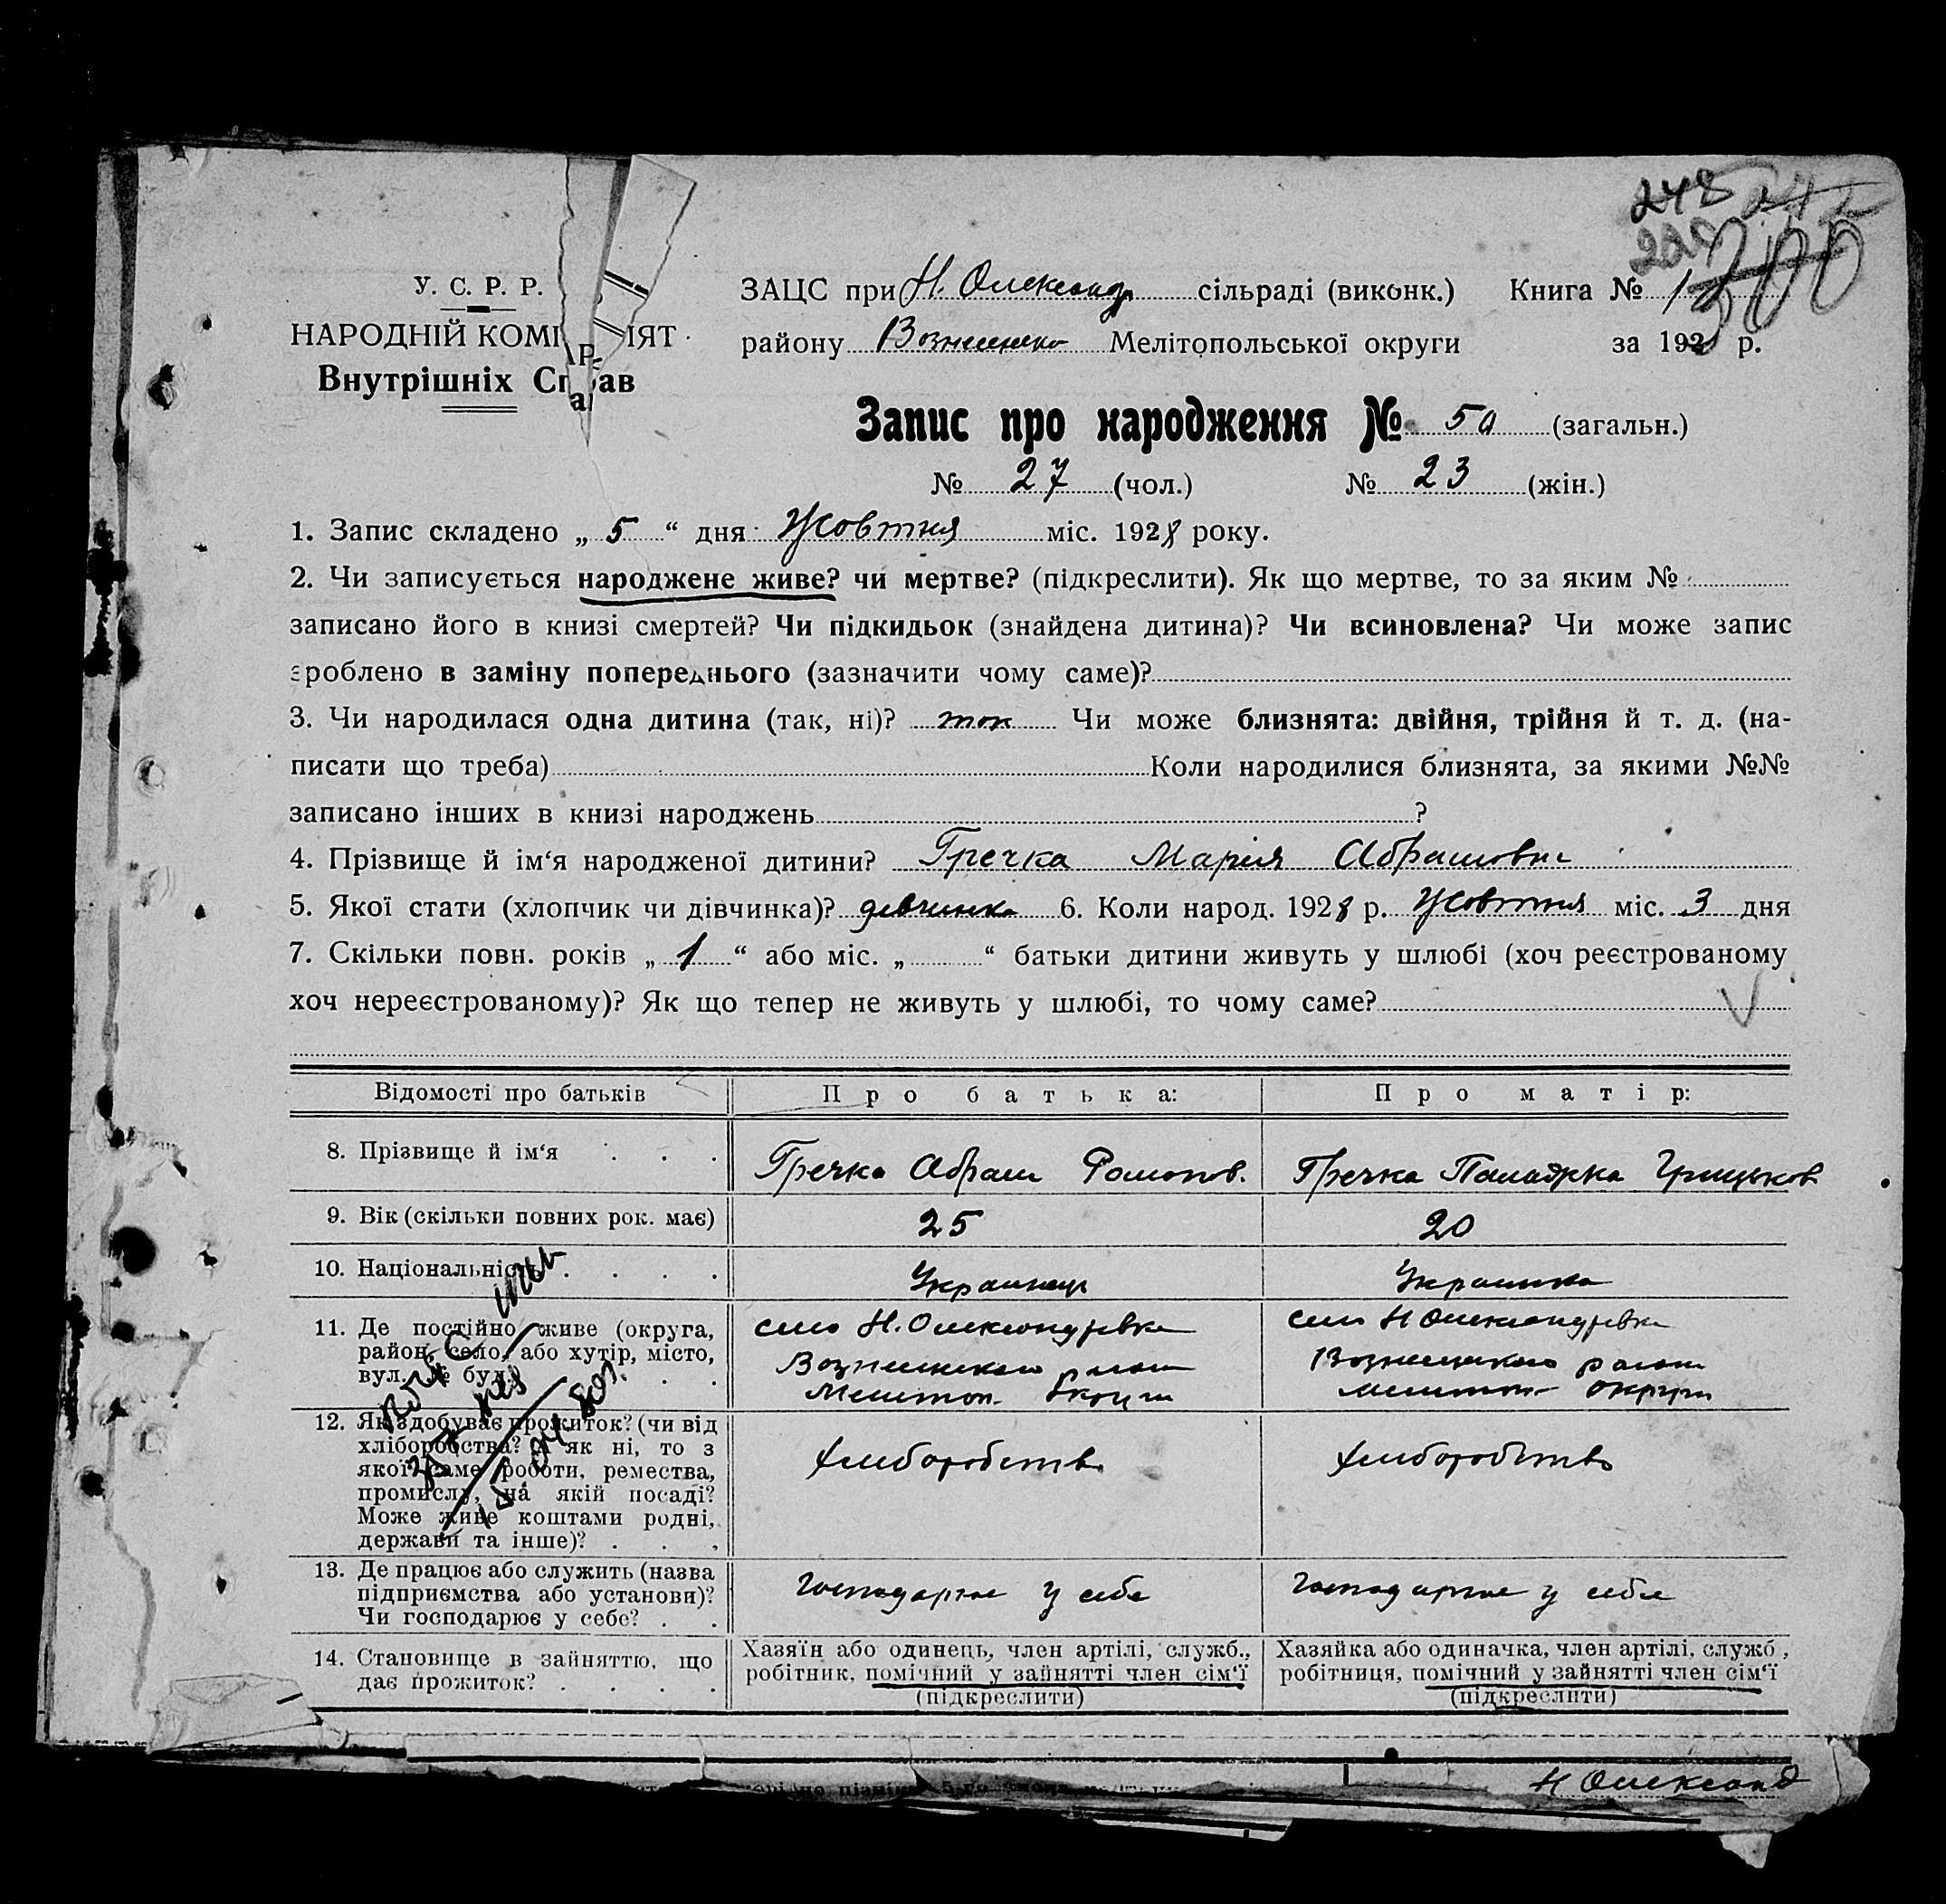 248
300
У. С. Р. Р.
НАРОДНІЙ КОМІ ІЯТ
Внутрішніх Справ
ЗАЦС при Н. Олександр сільраді (виконк.) Книга № 1
району Вознесенсько Мелітопольської округи за 192 р.
Запис про народження № 50 (загальн.)
№ 27 (чол.) № 23 (жін.)
1. Запис складено „ 5 “ дня Жовтня міс. 1928 року.
2. Чи записується народжене живе? чи мертве? (підкреслити). Як що мертве, то за яким №
записано його в книзі смертей? Чи підкидьок (знайдена дитина)? Чи всиновлена? Чи може запис
зроблено в заміну попереднього (зазначити чому саме)?
3. Чи народилася одна дитина (так, ні)? так Чи може близнята: двійня, трійня й т. д. (на-
писати що треба) Коли народилися близнята, за якими №№
записано інших в книзі народжень ?
4. Прізвище й ім‘я народженої дитини? Гречка Марія Абрамовн
5. Якої стати (хлопчик чи дівчинка)? девчинка 6. Коли народ. 1928 р. Жовтня міс. 3 дня
7. Скільки повн. років „ 1 “ або міс. „ “ батьки дитини живуть у шлюбі (хоч реєстрованому
хоч нереєстрованому)? Як що тепер не живуть у шлюбі, то чому саме?
Відомості про батьків Про батька: Про матір:
8. Прізвище й ім‘я . . . Гречка Абрам Романов. Гречка Палажка Грицьков
9. Вік (скільки повних рок. має) 25 20
10. Національність . . . . Украинець Украинка
11. Де постійно живе (округа,
район, село, або хутір, місто,
вул. № буд.) . . .
село Н. Олександрівка
Вознесенского району
Мелитоп. Округи
село Н Олександрівка
Вознесенского району
Мелитоп. округи
12. Як здобуває прожиток? (чи від
хліборобства? А як ні, то з
якої саме роботи, ремества,
промислу, на якій посаді?
Може живе коштами родні,
держави та інше)? . . .
хлиборобство
хлиборобство
13. Де працює або служить (назва
підприємства або установи)?
Чи господарює у себе? . .
господарює у себе
господарює у себе
14. Становище в зайняттю, що
дає прожиток? . . . .
Хазяїн або одинець, член артілі, служб.,
робітник, помічний у зайнятті член сім‘ї
(підкреслити)
Хазяйка або одиначка, член артілі, служб.,
робітниця, помічний у зайнятті член сім‘ї
(підкреслити)
Н Олександ